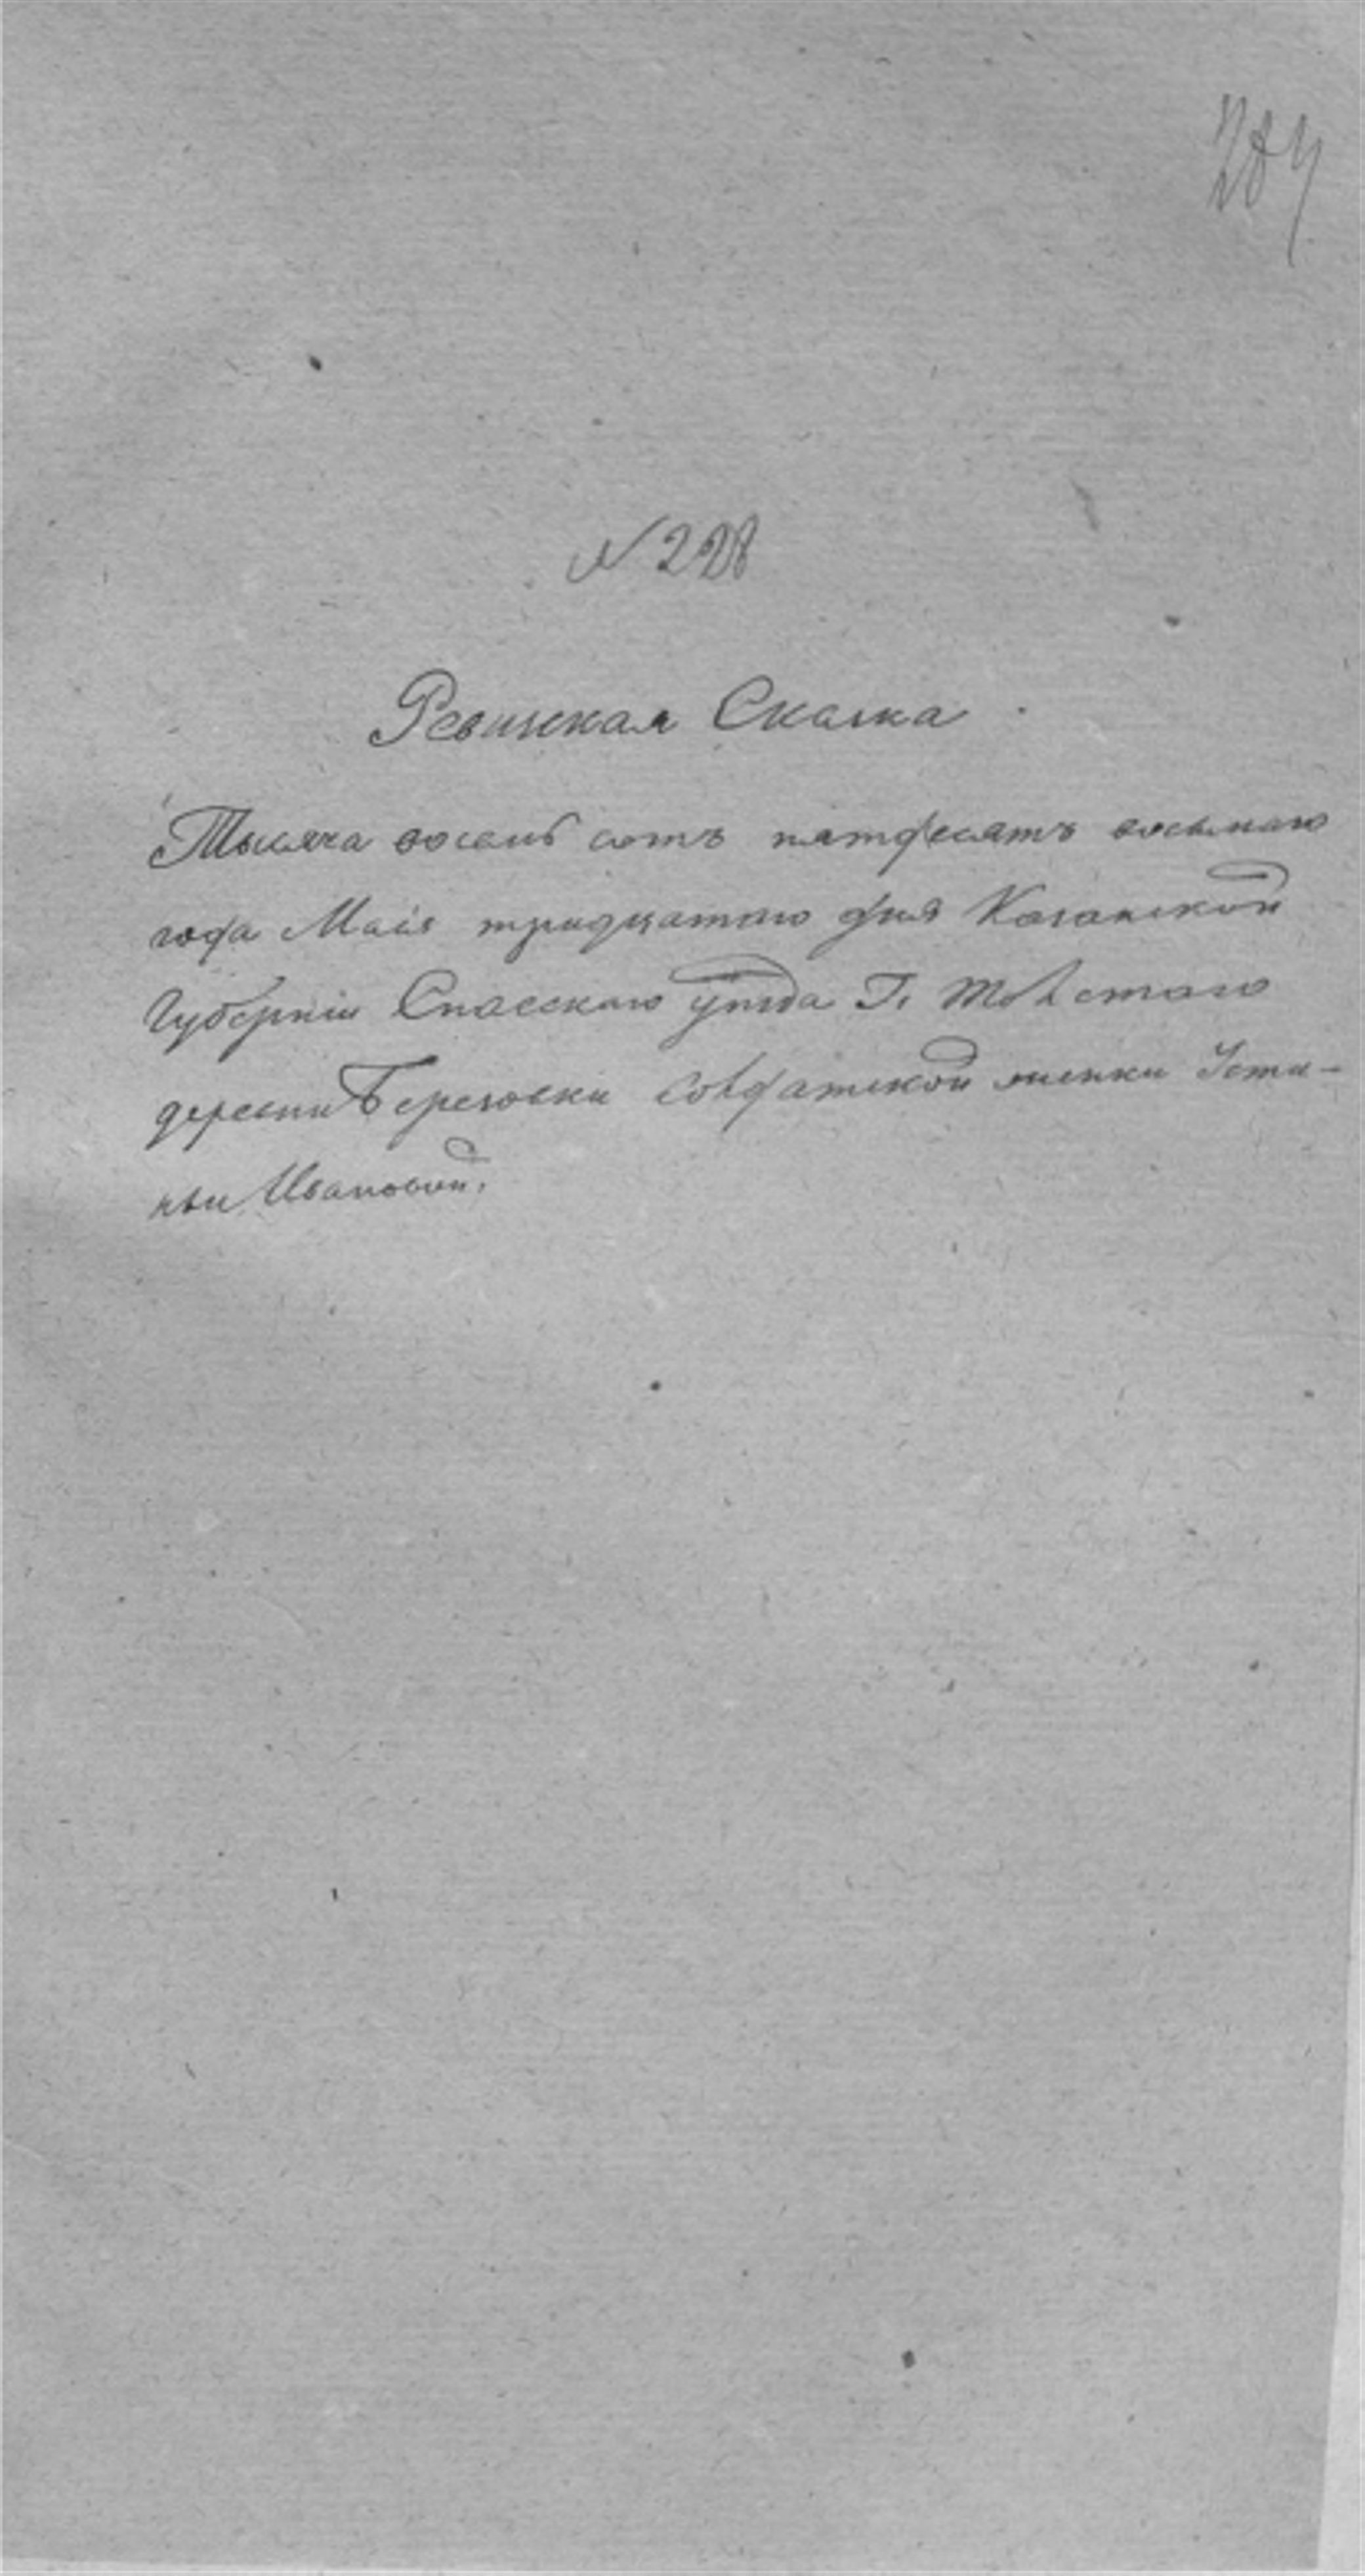 № 228
Ревижская Сказка
Тысяча восемь сотъ пятдесятъ восьмаго
года Маія тридцатаго дня Казанской
Губерніи Спасскаго уѣзда Г. Толстаго
деревни Березовки Солдатской жинки Усти-
ньи Ивановой.